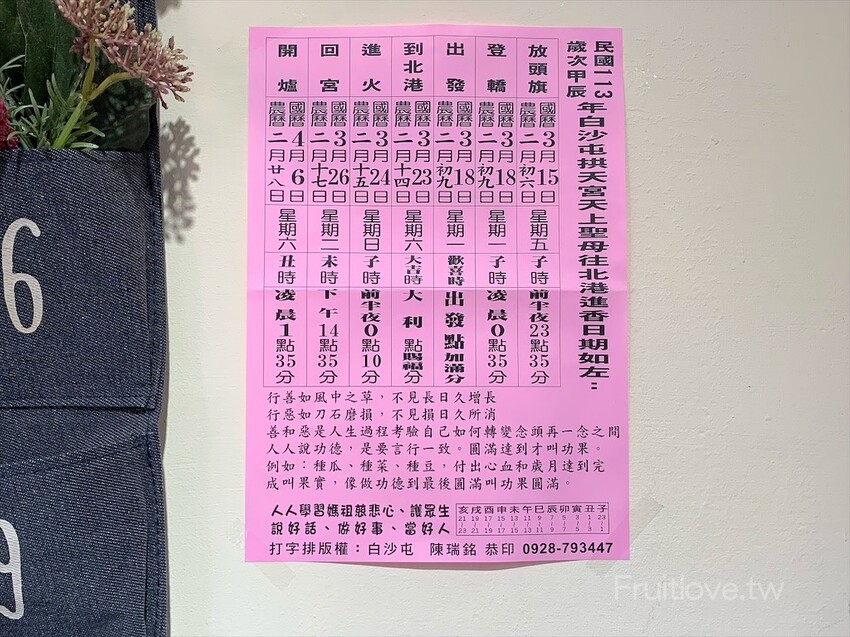 民國113年白沙屯拱天宮天上聖母往北港進香日期如左：
歲次甲辰
放頭旗 國曆3月15日 農曆二月初六日 星期五 子時 前半夜23點35分
登轎 國曆3月18日 農曆二月初九日 星期一 子時 凌晨0點35分
出發 國曆3月18日 農曆二月初九日 星期一 歡喜時 出發點加滿分
到北港 國曆3月23日 農曆二月十四日 星期六 大吉時 大利賜福分
進火 國曆3月24日 農曆二月十五日 星期日 子時 前半夜0點10分
回宮 國曆3月26日 農曆二月十七日 星期二 未時 下午14點35分
開爐 國曆4月6日 農曆二月廿八日 星期六 丑時 凌晨1點35分
行善如風中之草，不見長日久增長
行惡如刀石磨損，不見損日久所消
善和惡是人生過程考驗自己如何轉變念頭再一念之間
人人說功德，是要言行一致。圓滿達到才叫功果。
例如：種瓜、種菜、種豆，付出心血和歲月達到完
成叫果實，像做功德到最後圓滿叫功果圓滿。
人人學習媽祖慈悲心、護眾生
說好話、做好事、當好人
亥戌酉申未午巳辰卯寅丑子
21 19 17 15 13 11 9 7 5 3 1 23
23 21 19 17 15 13 11 9 7 5 3 1
打字排版權：白沙屯 陳瑞銘 恭印 0928-793447
6
9
Fruitlove.tw